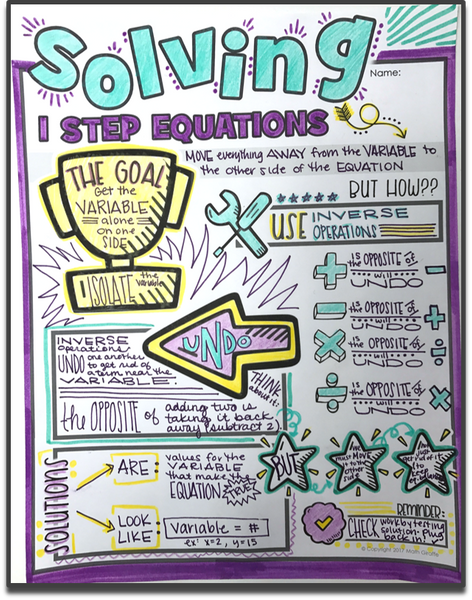 Solving
Name:
1 STEP EQUATIONS
MOVE everything AWAY from the VARIABLE to
the other side of the EQUATION
THE GOAL
Get the
VARIABLE
alone
on one
SIDE
ISOLATE the
variable
BUT HOW??
USE INVERSE
OPERATIONS
+ IS the OPPOSITE of -
will UNDO
- IS the OPPOSITE of +
will UNDO
× IS the OPPOSITE of ÷
will UNDO
÷ IS the OPPOSITE of ×
will UNDO
UNDO
INVERSE
operations
UNDO one another
to get rid of
a term near the
VARIABLE.
THINK
about it:
the OPPOSITE of adding two is
taking it back
away (subtract 2).
BUT
you must MOVE
it to the
other
side
SOLUTIONS
ARE:
values for the
VARIABLE
that make the
EQUATION
TRUE!
LOOK
LIKE:
variable = #
ex: x=2, y=15
REMINDER:
CHECK work by testing
solution. Plug
back in!
© Copyright 2017 Math Giraffe